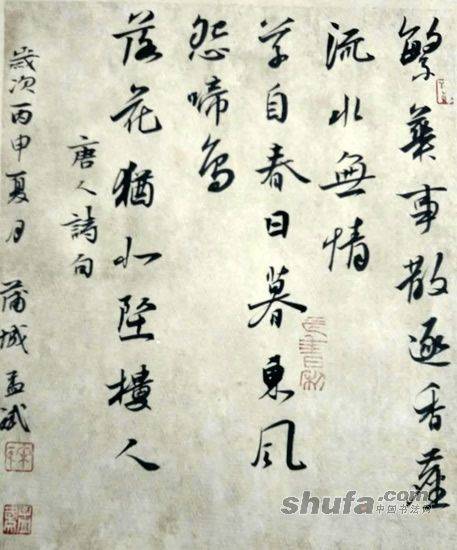 繁華事散逐香塵
流水無情
草自春日暮東風
怨啼鳥
落花猶似墜樓人
唐人詩句
歲次丙申夏月 蒲城孟斌
shufa.com
中国书法网